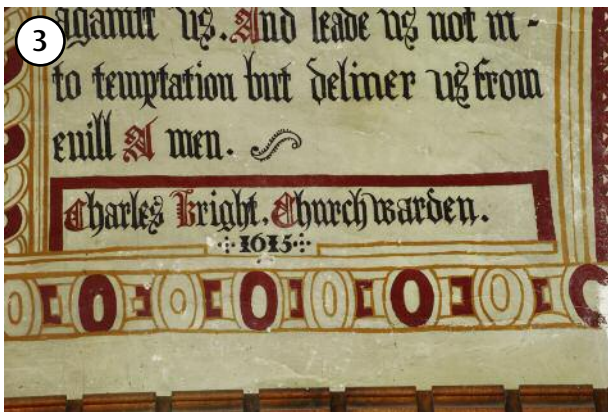 3
againſt us. And leade us not in -
to temptation but deliuer us from
euill A men.
Charles Bright. Churchwarden.
1615